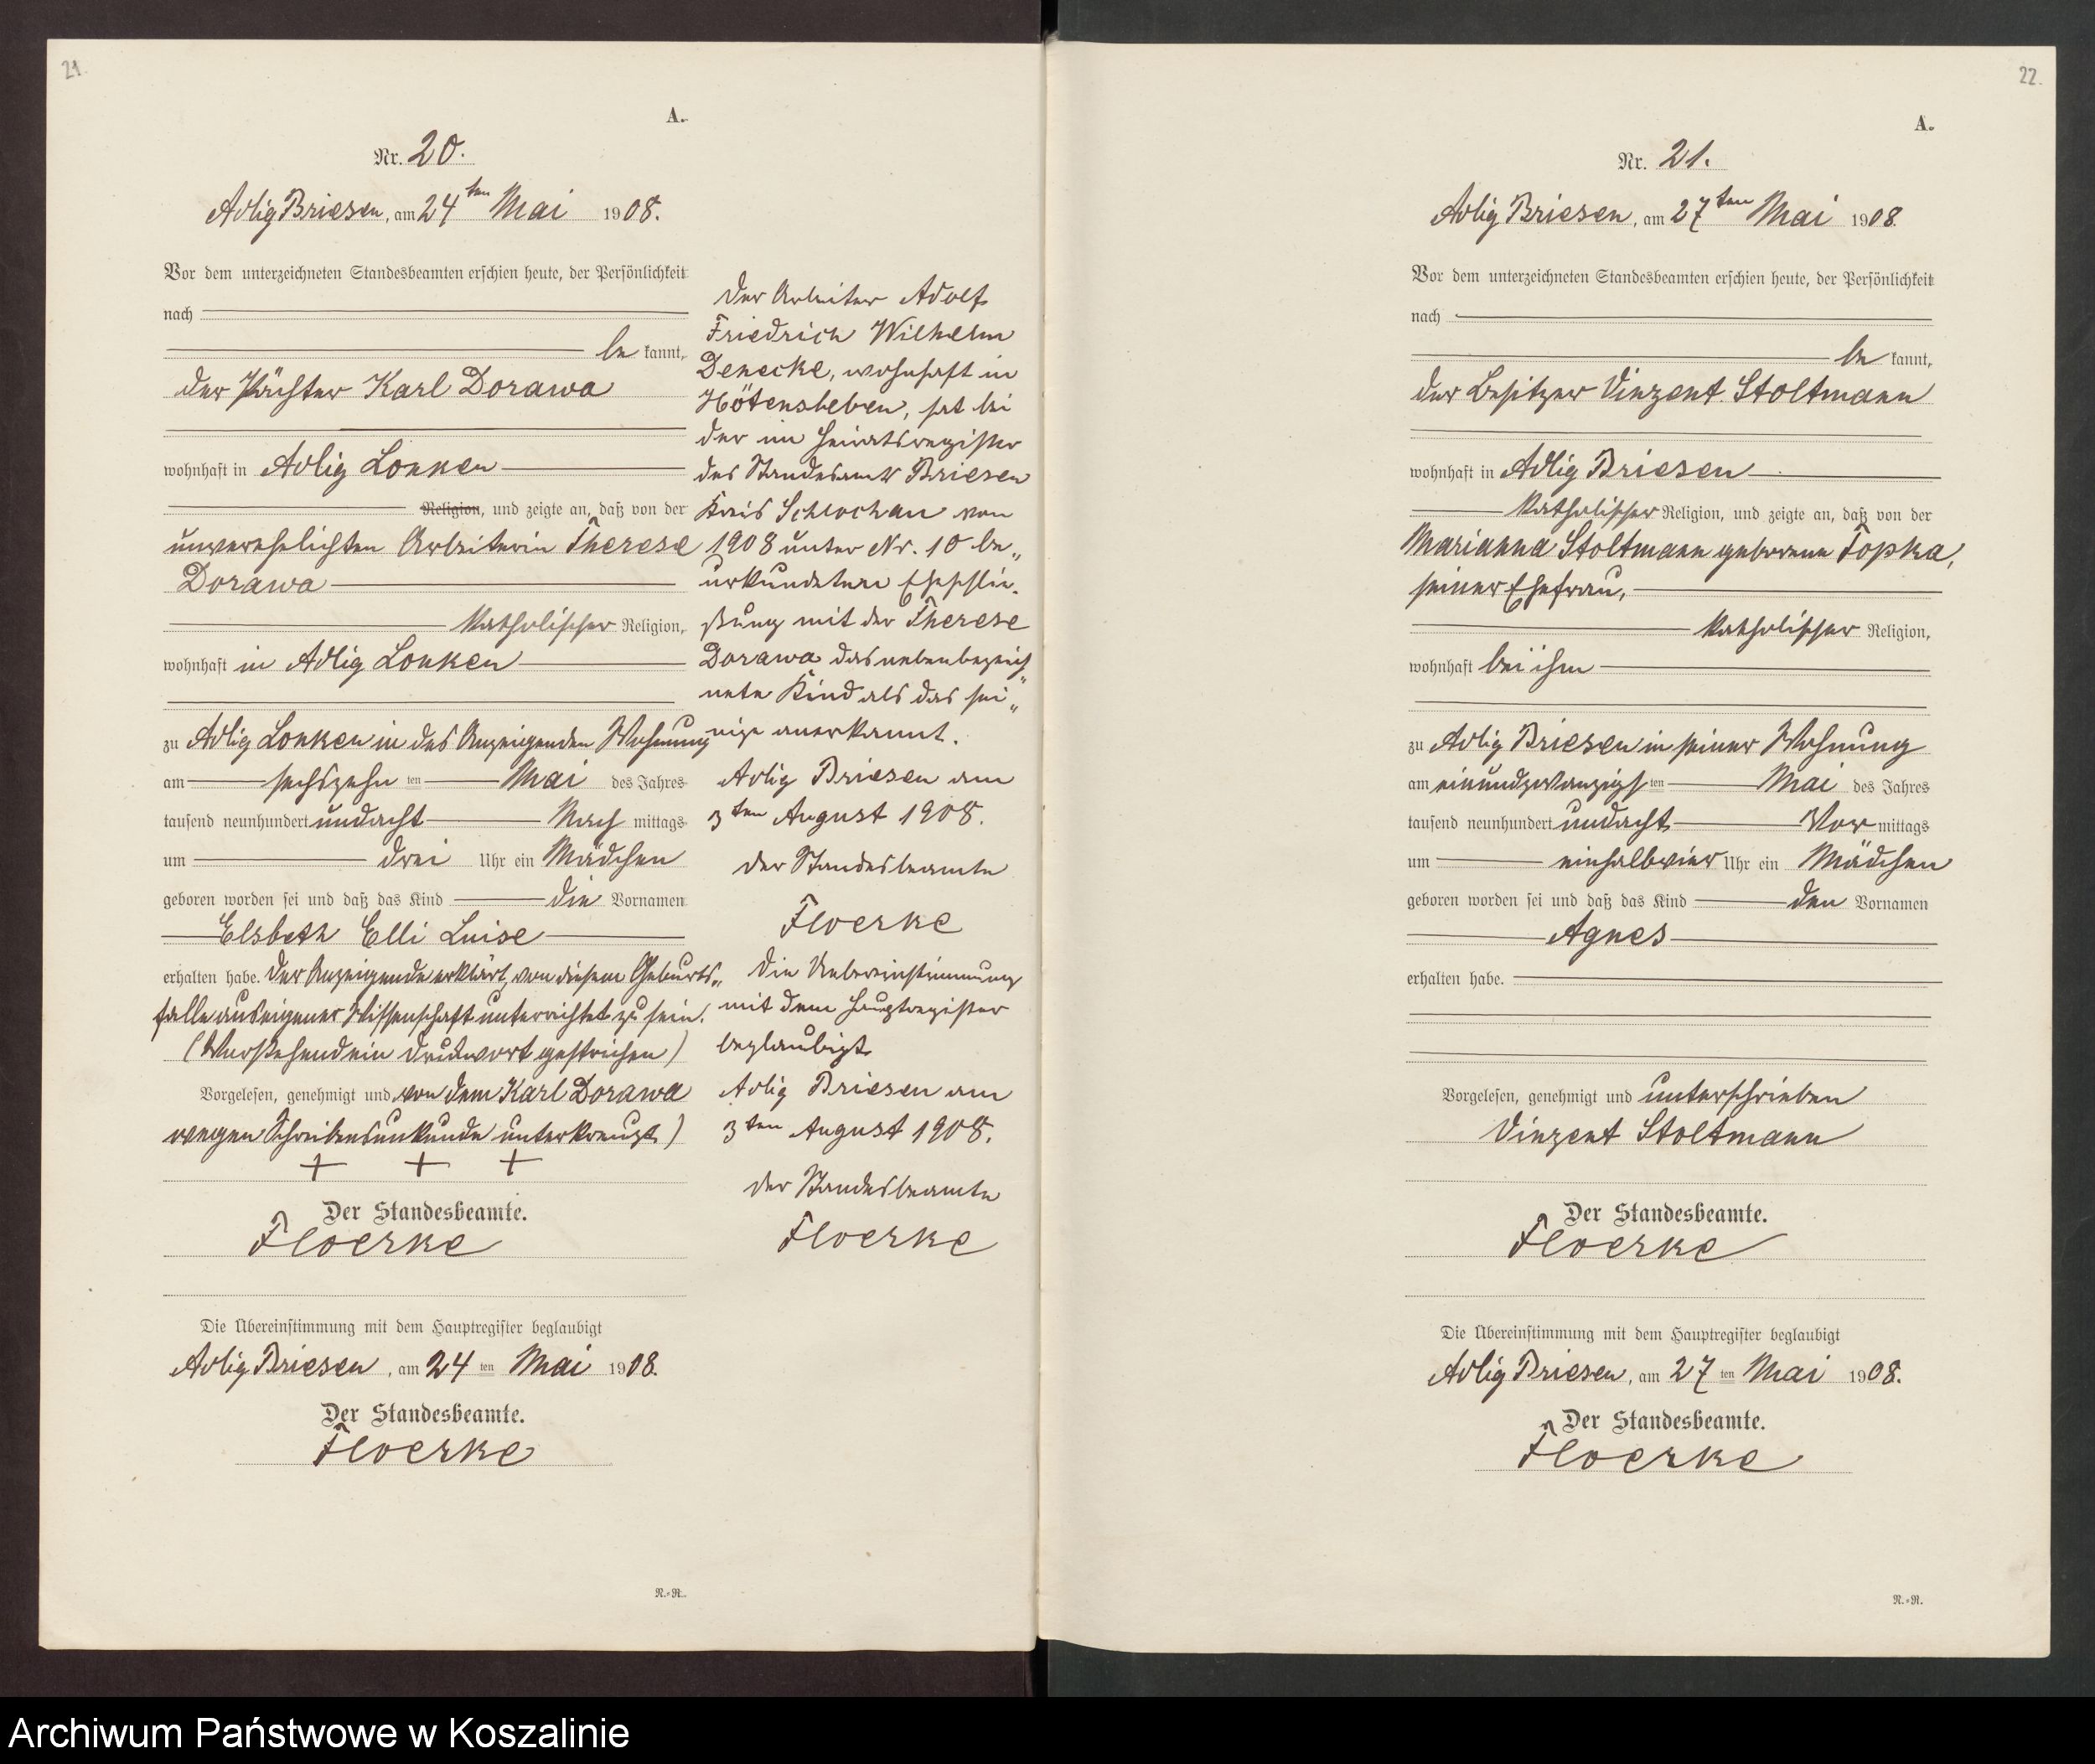 21.
A.
Nr. 20.
Adlig Briesen, am 24ten Mai 1908.
Vor dem unterzeichneten Standesbeamten erschien heute, der Persönlichkeit
nach
be kannt,
der Pächter Karl Dorawa
wohnhaft in Adlig Lonken
Religion, und zeigte an, daß von der
unverehelichten Arbeiterin Therese
Dorawa
katholischer Religion,
wohnhaft in Adlig Lonken
zu Adlig Lonken in des Anzeigenden Wohnung
am sechszehn ten Mai des Jahres
tausend neunhundert undacht Nach mittags
um drei Uhr ein Mädchen
geboren worden sei und daß das Kind die Vornamen
Elsbeth Elli Luise
erhalten habe. Der Anzeigende erklärt, von diesem Geburts„
falle aus eigener Wissenschaft unterrichtet zu sein.
(Vorstehend ein Druckwort gestrichen)
Vorgelesen, genehmigt und von dem Karl Dorawa
wegen Schreibensunkunde unterkreuzt)
+ + +
Der Standesbeamte.
Floerke
Die Übereinstimmung mit dem Hauptregister beglaubigt
Adlig Briesen, am 24 ten Mai 1908.
Der Standesbeamte.
Floerke
N.=R.
Der Arbeiter Adolf
Friedrich Wilhelm
Denecke, wohnhaft in
Hötensleben, hat bei
der im Heiratsregister
des Standesamts Briesen
Kreis Schlochau von
1908 unter Nr. 10 be„
urkundeten Eheschlie-
ßung mit der Therese
Dorawa das nebenbezeich„
nete Kind als das sei„
nige anerkannt.
Adlig Briesen am
3ten August 1908.
Der Standesbeamte
Floerke
Die Uebereinstimmung
mit dem Hauptregister
beglaubigt
Adlig Briesen am
3ten August 1908.
Der Standesbeamte
Floerke
22.
A.
Nr. 21.
Adlig Briesen, am 27ten Mai 1908.
Vor dem unterzeichneten Standesbeamten erschien heute, der Persönlichkeit
nach
be kannt,
der Besitzer Vinzent Stoltmann
wohnhaft in Adlig Briesen
katholischer Religion, und zeigte an, daß von der
Marianna Stoltmann geborene Topka,
seiner Ehefrau,
katholischer Religion,
wohnhaft bei ihm
zu Adlig Briesen in seiner Wohnung
am einundzwanzigs ten Mai des Jahres
tausend neunhundert undacht Vor mittags
um einhalbvier Uhr ein Mädchen
geboren worden sei und daß das Kind den Vornamen
Agnes
erhalten habe.
Vorgelesen, genehmigt und unterschrieben
Vinzent Stoltmann
Der Standesbeamte.
Floerke
Die Übereinstimmung mit dem Hauptregister beglaubigt
Adlig Briesen, am 27 ten Mai 1908.
Der Standesbeamte.
Floerke
N.=R.
Archiwum Państwowe w Koszalinie